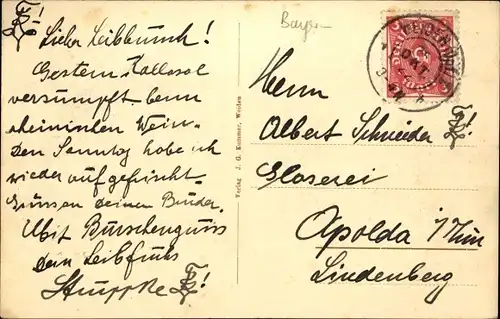 Lieber Leibbursch!
Gestern kolossal
versumpft beim
rheinischen Wein.
Den Sonntag habe ich
wieder aufgefrischt.
Grüssen deinen Bruder.
Mit Burschengruss
Dein Leibfuchs
Verlag J. G. Kummer, Weiden
Bayern
Herrn
Albert Schneider
Glaserei
Apolda i/Thür
Lindenberg